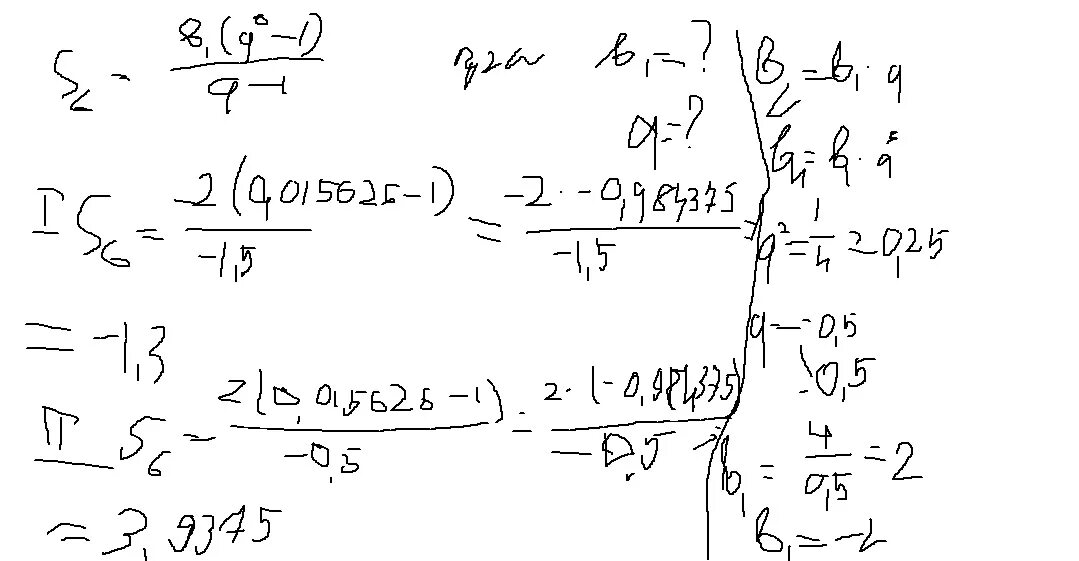 S₆ = b₁(q⁶-1) / q-1    b₁=?
q=?
I S₆ = -2(0,015625-1) / -1,5 = -2·-0,984375 / -1,5 =
= -1,3
II S₆ = 2(0,015625-1) / -0,5 = 2·(-0,984375) / -0,5 =
= 3,9375
B₂=b₁·q
b₄=b₁·q³
q²=1/4=0,25
q=-0,5
0,5
b₁=4/0,5=2
b₁=-2